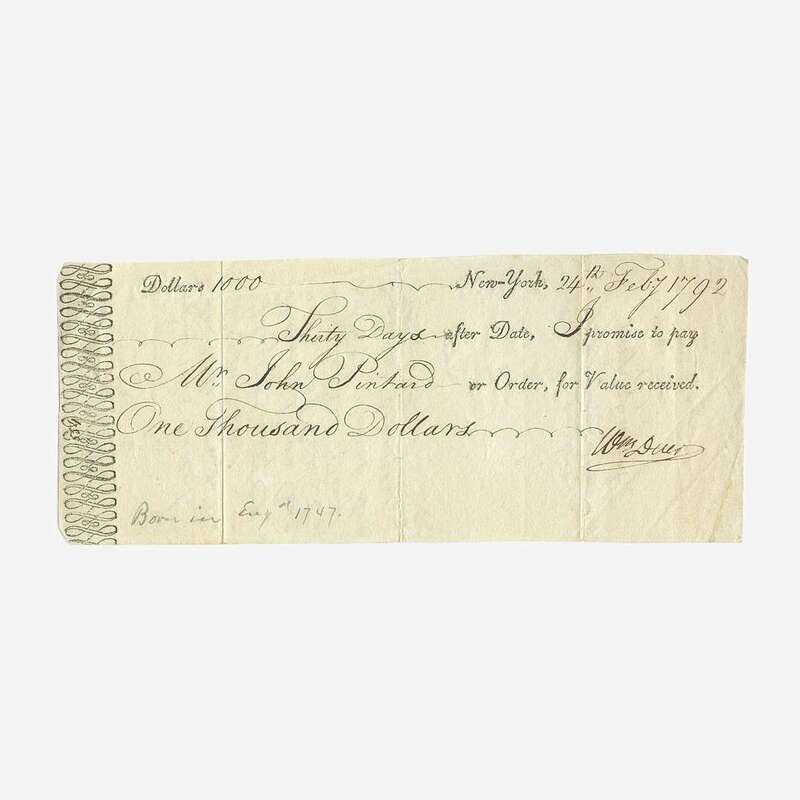 Dollars 1000 New-York, 24th Feby 1792
Thirty Days after Date, I promise to pay
Mr. John Pintard or Order, for Value received.
One Thousand Dollars
Wm Duer
Born in Engd 1747.